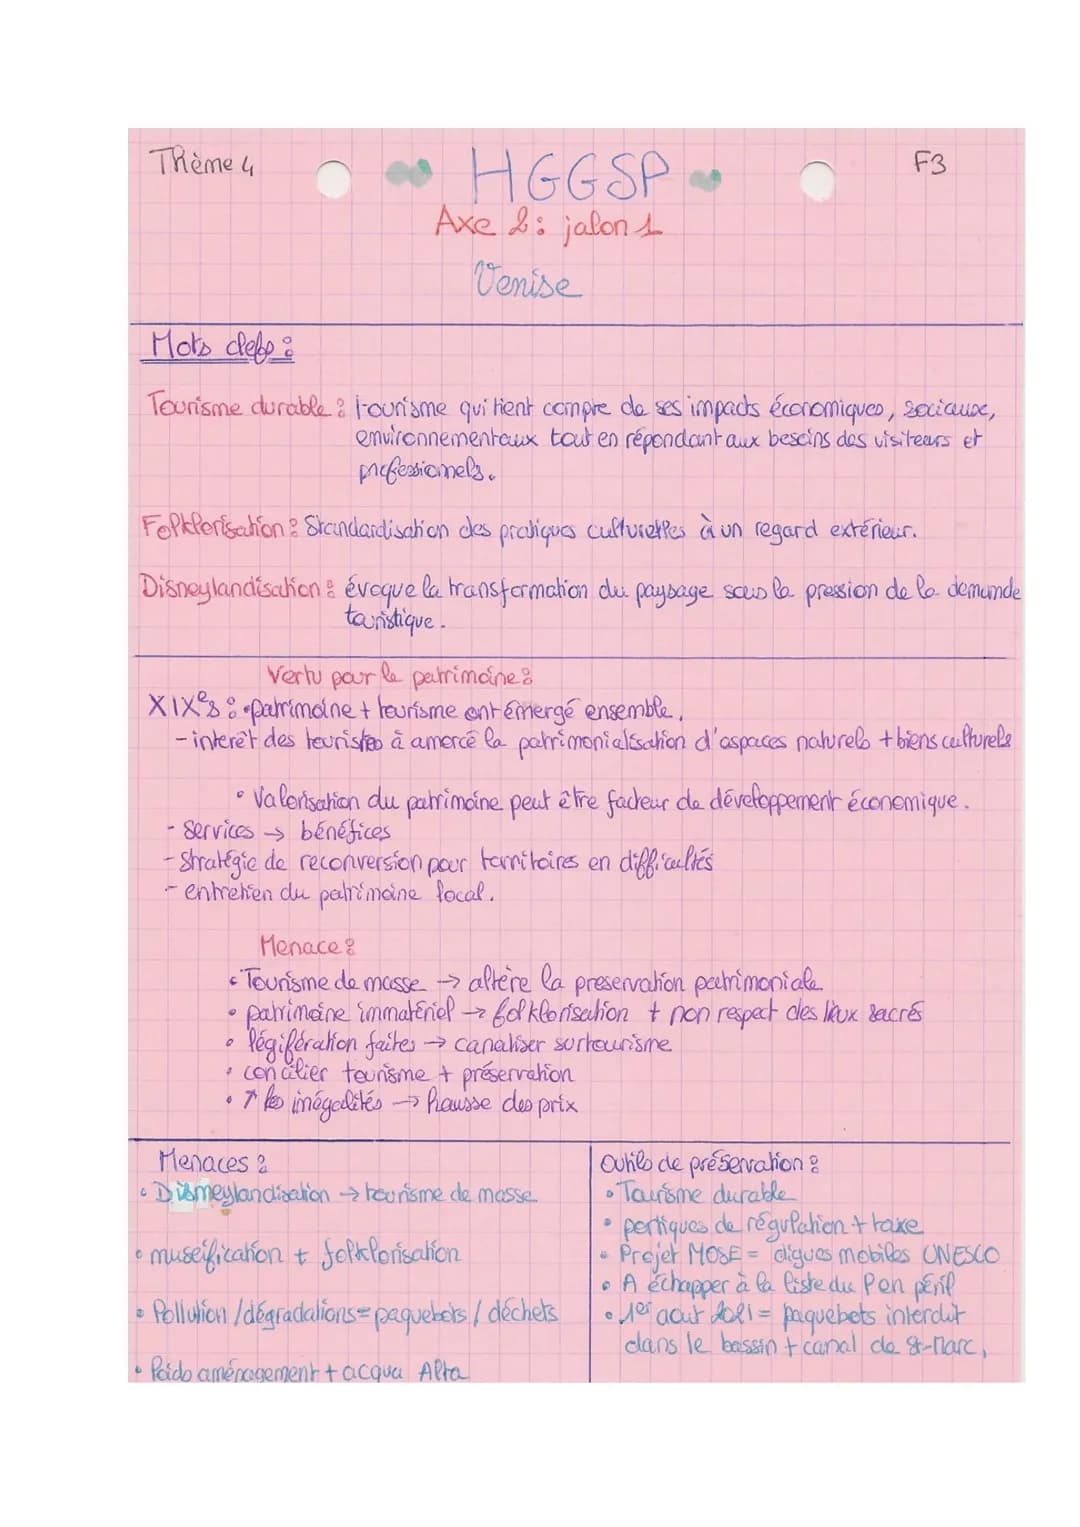 Thème 4
HGGSP
F3
Axe 2 : jalon 1
Venise
Mots clefs :
Tourisme durable : tourisme qui tient compte de ses impacts économiques, sociaux,
environnementaux tout en répondant aux besoins des visiteurs et
professionnels.
Folklorisation : Standardisation des pratiques culturelles à un regard extérieur.
Disneylandisation : évoque la transformation du paysage sous la pression de la demande
touristique.
Vertu pour le patrimoine :
XIXe s : • patrimoine + tourisme ont émergé ensemble.
- interêt des touristes à amorcé la patrimonialisation d'espaces naturels + biens culturels
• Valorisation du patrimoine peut être facteur de développement économique.
- Services → bénéfices
- Stratégie de reconversion pour territoires en difficultés
- entretien du patrimoine local.
Menace :
• Tourisme de masse → altère la preservation patrimoniale
• patrimoine immatériel → folklorisation + non respect des lieux sacrés
• légifération faites → canaliser surtourisme
• concilier tourisme + préservation
• ↑ les inégalités → hausse des prix
Menaces :
• Disneylandisation → tourisme de masse
• muséification + folklorisation
• Pollution / dégradations = paquebots / déchets
• Poids aménagement + acqua Alta
Outils de préservation :
• Tourisme durable
• portiques de régulation + taxe
• Projet MOSE = digues mobiles UNESCO
• A échapper à la liste du P en péril
• 1er aout 2021 = paquebots interdit
dans le bassin + canal de St-Marc,